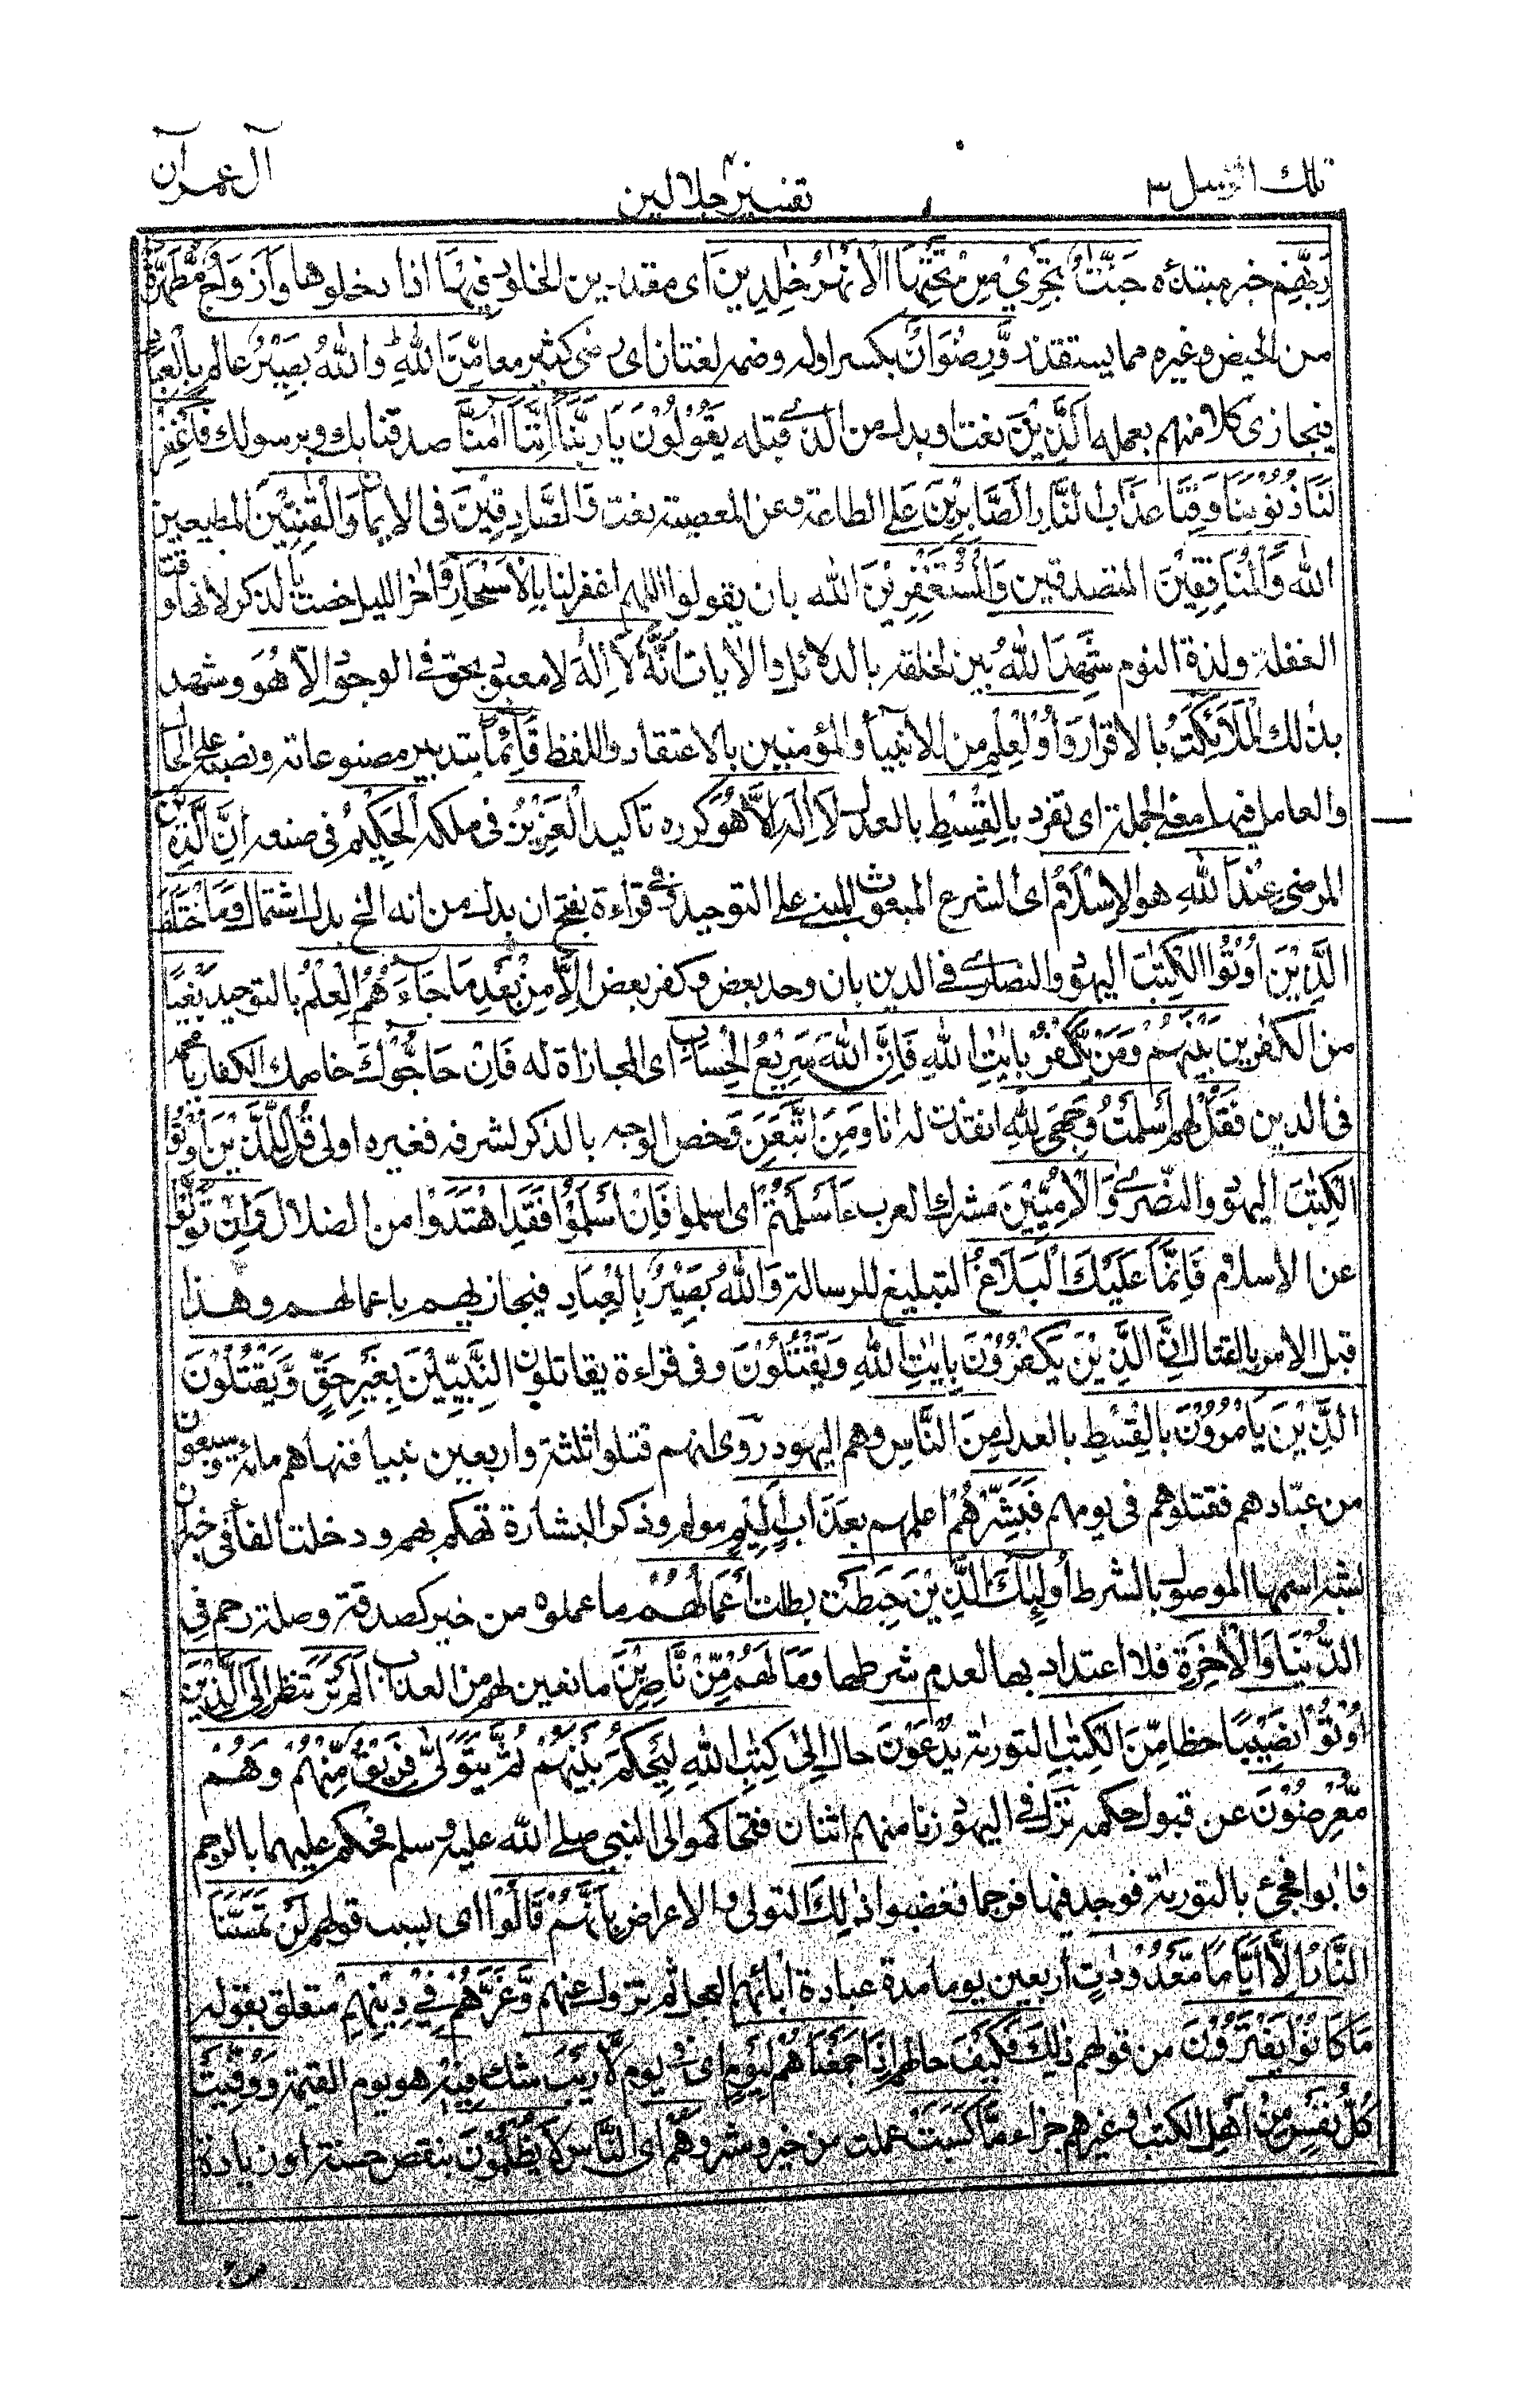 تلك الرسل ٣ تفسير جلالين آل عمران
رَبِّهِمْ خبر مبتدؤه جَنّٰتٌ تَجْرِيْ مِنْ تَحْتِهَا الْاَنْهٰرُ خٰلِدِيْنَ اى مقدرين الخلود فِيْهَا اذا دخلوها وَاَزْوَاجٌ مُّطَهَّرَةٌ
من الحيض وغيره مما يستقذر وَّرِضْوَانٌ بكسر اوله وضمه لغتان اى رضى كثير مِّنَ اللّٰهِ وَاللّٰهُ بَصِيْرٌ عالم بِالْعِبَادِ
فيجازى كلا منهم بعمله اَلَّذِيْنَ نعت او بدل من الذين قبله يَقُوْلُوْنَ يا رَبَّنَا اِنَّنَا اٰمَنَّا صدقنا بك وبرسولك فَاغْفِرْ
لَنَا ذُنُوْبَنَا وَقِنَا عَذَابَ النَّارِ اَلصَّابِرِيْنَ على الطاعة وعن المعصية نعت وَالصَّادِقِيْنَ فى الايمان وَالْقٰنِتِيْنَ المطيعين
الله وَالْمُنَافِقِيْنَ المتصدقين وَالْمُسْتَغْفِرِيْنَ الله بان يقولوا اللهم اغفر لنا بِالْاَسْحَارِ اواخر الليل خصت بالذكر لانها وقت
الغفلة ولذة النوم شَهِدَ اللّٰهُ بين لخلقه بالدلائل والايات اَنَّهٗ لَا اِلٰهَ لا معبود بحق فى الوجود اِلَّا هُوَ وشهد
بذلك الْمَلٰٓئِكَةُ بالاقرار وَاُولُوا الْعِلْمِ من الانبياء والمؤمنين بالاعتقاد واللفظ قَآئِمًا بتدبير مصنوعاته ونصبه على الحال
والعامل فيها معنى الجملة اى تفرد بِالْقِسْطِ بالعدل لَا اِلٰهَ اِلَّا هُوَ كرره تاكيدا الْعَزِيْزُ فى ملكه الْحَكِيْمُ فى صنعه اِنَّ الدِّيْنَ
المرضى عِنْدَ اللّٰهِ هو الْاِسْلَامُ اى الشرع المبعوث به المبنى على التوحيد وفى قراءة بفتح ان بدل من انه الخ بدل اشتمال وَمَا اخْتَلَفَ
الَّذِيْنَ اُوْتُوا الْكِتٰبَ اليهود والنصارى فى الدين بان وحد بعض وكفر بعض اِلَّا مِنْ بَعْدِ مَا جَاءَهُمُ الْعِلْمُ بالتوحيد بَغْيًا
من الكٰفرين بَيْنَهُمْ وَمَنْ يَّكْفُرْ بِاٰيٰتِ اللّٰهِ فَاِنَّ اللّٰهَ سَرِيْعُ الْحِسَابِ اى المجازاة له فَاِنْ حَاجُّوْكَ خاصمك الكفار يا محمد
فى الدين فَقُلْ لهم اَسْلَمْتُ وَجْهِيَ لِلّٰهِ انقدت له انا وَمَنِ اتَّبَعَنِ وخص الوجه بالذكر لشرفه فغيره اولى وَقُلْ لِّلَّذِيْنَ اُوْتُوا
الْكِتٰبَ اليهود والنصٰرى وَالْاُمِّيِّيْنَ مشركى العرب ءَاَسْلَمْتُمْ اى اسلموا فَاِنْ اَسْلَمُوْا فَقَدِ اهْتَدَوْا من الضلال وَاِنْ تَوَلَّوْا
عن الاسلام فَاِنَّمَا عَلَيْكَ الْبَلَاغُ التبليغ للرسالة وَاللّٰهُ بَصِيْرٌ بِالْعِبَادِ فيجازيهم باعمالهم وهذا
قبل الامر بالقتال اِنَّ الَّذِيْنَ يَكْفُرُوْنَ بِاٰيٰتِ اللّٰهِ وَيَقْتُلُوْنَ وفى قراءة يقاتلون النَّبِيِّيْنَ بِغَيْرِ حَقٍّ وَّيَقْتُلُوْنَ
الَّذِيْنَ يَاْمُرُوْنَ بِالْقِسْطِ بالعدل مِنَ النَّاسِ وهم اليهود روى انهم قتلوا ثلثة واربعين نبيا فنهاهم مائة وسبعون
من عبّادهم فقتلوهم فى يومهم فَبَشِّرْهُمْ اعلمهم بِعَذَابٍ اَلِيْمٍ مولم وذكر البشارة تهكم بهم ودخلت الفاء فى خبر ان
لشبه اسمها الموصول بالشرط اُولٰٓئِكَ الَّذِيْنَ حَبِطَتْ بطلت اَعْمَالُهُمْ ما عملوه من خير كصدقة وصلة رحم فِى
الدُّنْيَا وَالْاٰخِرَةِ فلا اعتداد بها لعدم شرطها وَمَا لَهُمْ مِّنْ نَّاصِرِيْنَ مانعين لهم من العذاب اَلَمْ تَرَ تنظر اِلَى الَّذِيْنَ
اُوْتُوْا نَصِيْبًا حظا مِّنَ الْكِتٰبِ التورىة يُدْعَوْنَ حال اِلٰى كِتٰبِ اللّٰهِ لِيَحْكُمَ بَيْنَهُمْ ثُمَّ يَتَوَلّٰى فَرِيْقٌ مِّنْهُمْ وَهُمْ
مُّعْرِضُوْنَ عن قبول حكمه نزل فى اليهود زنا منهم اثنان فتحاكموا الى النبى صلى الله عليه وسلم فحكم عليهما بالرجم
فابوا فجئ بالتورىة فوجد فيها فرجما فغضبوا ذٰلِكَ التولى والاعراض بِاَنَّهُمْ قَالُوْا اى بسبب قولهم لَنْ تَمَسَّنَا
النَّارُ اِلَّا اَيَّامًا مَّعْدُوْدٰتٍ اربعين يوما مدة عبادة ابائهم العجل ثم تزول عنهم وَغَرَّهُمْ فِيْ دِيْنِهِمْ متعلق بقوله
مَا كَانُوْا يَفْتَرُوْنَ من قولهم ذلك فَكَيْفَ حالهم اِذَا جَمَعْنٰهُمْ لِيَوْمٍ اى فى يوم لَّا رَيْبَ شك فِيْهِ هو يوم القيمة وَوُفِّيَتْ
كُلُّ نَفْسٍ من اهل الكتب وغيرهم جزاء مَّا كَسَبَتْ عملت من خير وشر وَهُمْ اى الناس لَا يُظْلَمُوْنَ بنقص حسنة او زيادة